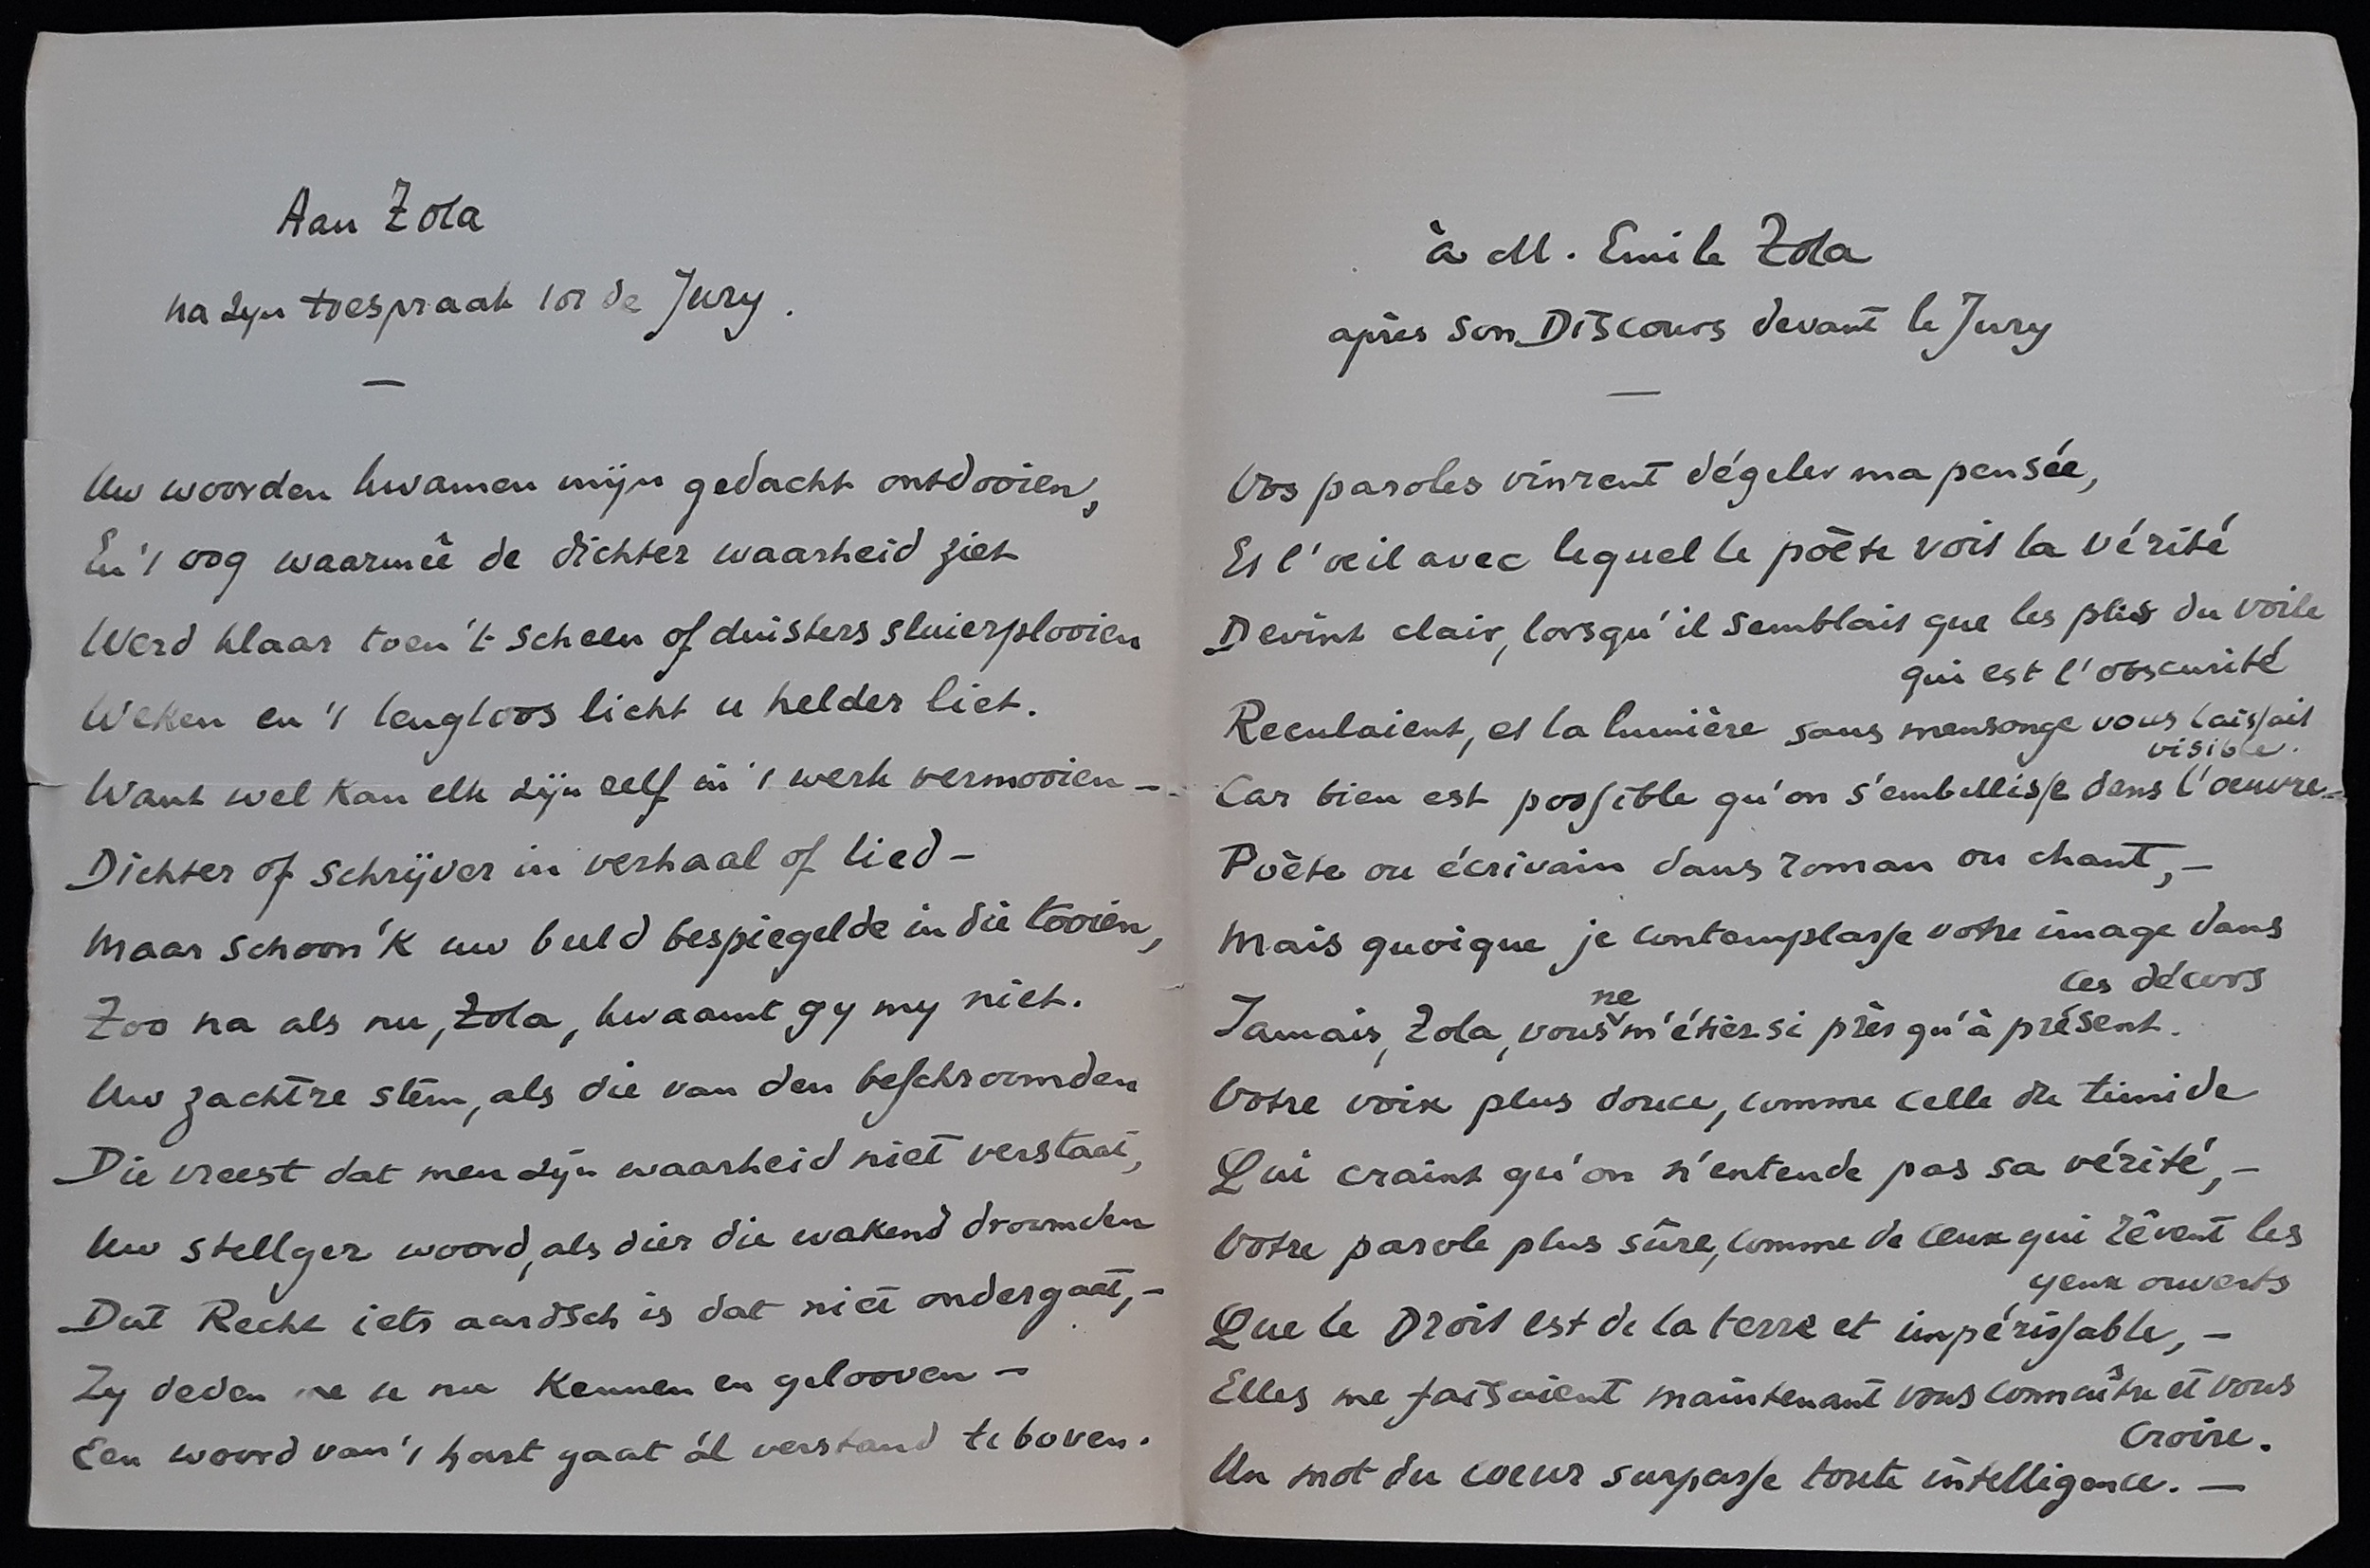 Aan Zola
na zyn toespraak tot de Jury.
Uw woorden kwamen mijn gedacht ontdooien,
En 't oog waarmeê de dichter waarheid ziet
Werd klaar toen 't scheen of duisters sluierplooien
Weken en 't leugloos licht u helder liet.
Want wel kan elk zijn self in 't werk vermooien –
Dichter of schrijver in verhaal of lied –
Maar schoon 'k uw beeld bespiegelde in die tooien,
Zoo na als nu, Zola, kwaamt gy my niet.
Uw zachtre stem, als die van den beschroomden
Die vreest dat men zijn waarheid niet verstaat,
Uw stellger woord, als dier die wakend droomden
Dat Recht iets aardsch is dat niet ondergaat, –
Zy deden me u nu kennen en gelooven –
Een woord van 't hart gaat ál verstand te boven.
à M. Emile Zola
après son Discours devant le Jury
Vos paroles vinrent dégeler ma pensée,
Et l'oeil avec lequel le poète voit la vérité
Devint clair, lorsqu'il semblait que les plis du voile
qui est l'obscurité
Reculaient, et la lumière sans mensonge vous laissait
visible.
Car bien est possible qu'on s'embellisse dans l'oeuvre –
Poète ou écrivain dans roman ou chant, –
Mais quoique je contemplasse votre image dans
ces décors
Jamais, Zola, vous ne m'étiez si près qu'à présent.
Votre voix plus douce, comme celle du timide
Qui craint qu'on n'entende pas sa vérité, –
Votre parole plus sûre, comme de ceux qui rêvent les
yeux ouverts
Que le Droit est de la terre et impérissable, –
Elles me faisaient maintenant vous connaître et vous
croire.
Un mot du coeur surpasse toute intelligence. –